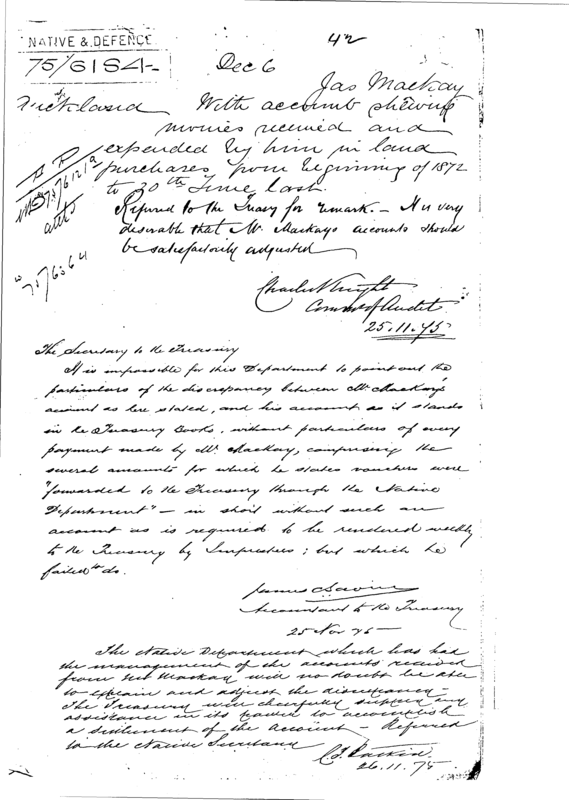 42
NATIVE & DEFENCE
75/6184
Dec 6
Jas Mackay
Auckland With accounts shewing
monies received and
expended by him in land
purchases from beginning of 1872
to 30th June last.
75/6129
atts
75/6364
Referred to the Treasy for remark. — It is very
desirable that Mr Mackays accounts should
be satisfactorily adjusted
Charles Knight
Commr of Audit
25.11.75
The Secretary to the Treasury
It is impossible for this Department to point out the
particulars of the discrepancy between Mr Mackay's
account as here stated, and his account as it stands
in the Treasury Books, without particulars of every
payment made by Mr Mackay, comprising the
several amounts for which he states vouchers were
"forwarded to the Treasury through the Native
Department" — in short without such an
account as is required to be rendered weekly
to the Treasury by Imprestees; but which he
failed to do.
James
Accountant to the Treasury
25 Nov 75
The Native Department which has had
the management of the accounts received
from Mr Mackay will no doubt be able
to explain and adjust the discrepancy.
The Treasury will cheerfully supply any
assistance in its power to accomplish
a settlement of the account. Referred
to the Native Secretary
26.11.75